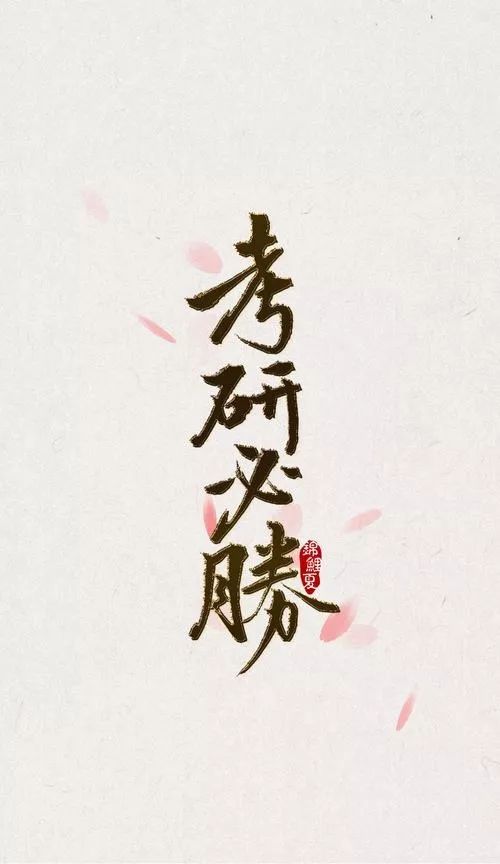 考研必勝
錦鯉夏